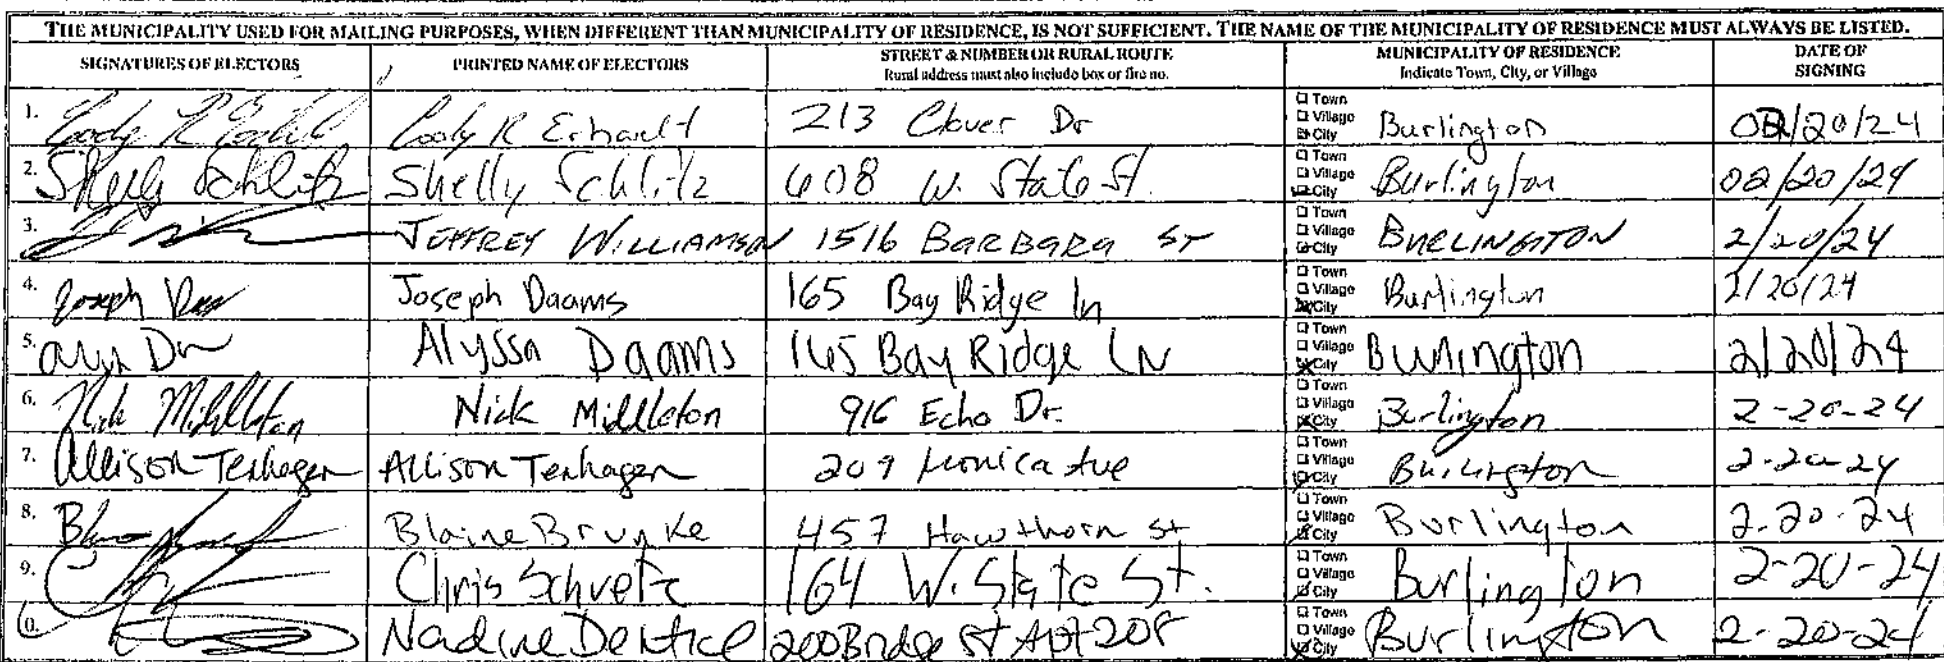 THE MUNICIPALITY USED FOR MAILING PURPOSES, WHEN DIFFERENT THAN MUNICIPALITY OF RESIDENCE, IS NOT SUFFICIENT. THE NAME OF THE MUNICIPALITY OF RESIDENCE MUST ALWAYS BE LISTED.
SIGNATURES OF ELECTORS PRINTED NAME OF ELECTORS STREET & NUMBER OR RURAL ROUTE Rural address must also include box or fire no. MUNICIPALITY OF RESIDENCE Indicate Town, City, or Village DATE OF SIGNING
1. Cody R Cody R Erhardt 213 Clover Dr Town Village City Burlington 02/20/24
2. Shelly Schlitz Shelly Schlitz 608 W. State St. Town Village City Burlington 02/20/24
3. JEFFREY WILLIAMSON 1516 BARBARA ST Town Village City BURLINGTON 2/20/24
4. Joseph Joseph Daams 165 Bay Ridge ln Town Village City Burlington 2/20/24
5. Alyssa Daams 165 Bay Ridge LN Town Village City Burlington 2/20/24
6. Nick Middleton Nick Middleton 916 Echo Dr. Town Village City Burlington 2-20-24
7. Allison Tenhagen Allison Tenhagen 209 Monica Ave Town Village City Burlington 2-20-24
8. Blaine Brunke 457 Hawthorn st Town Village City Burlington 2-20-24
9. Chris 164 W. State St. Town Village City Burlington 2-20-24
10. Nadine 200 Bridge St Apt 208 Town Village City Burlington 2-20-24